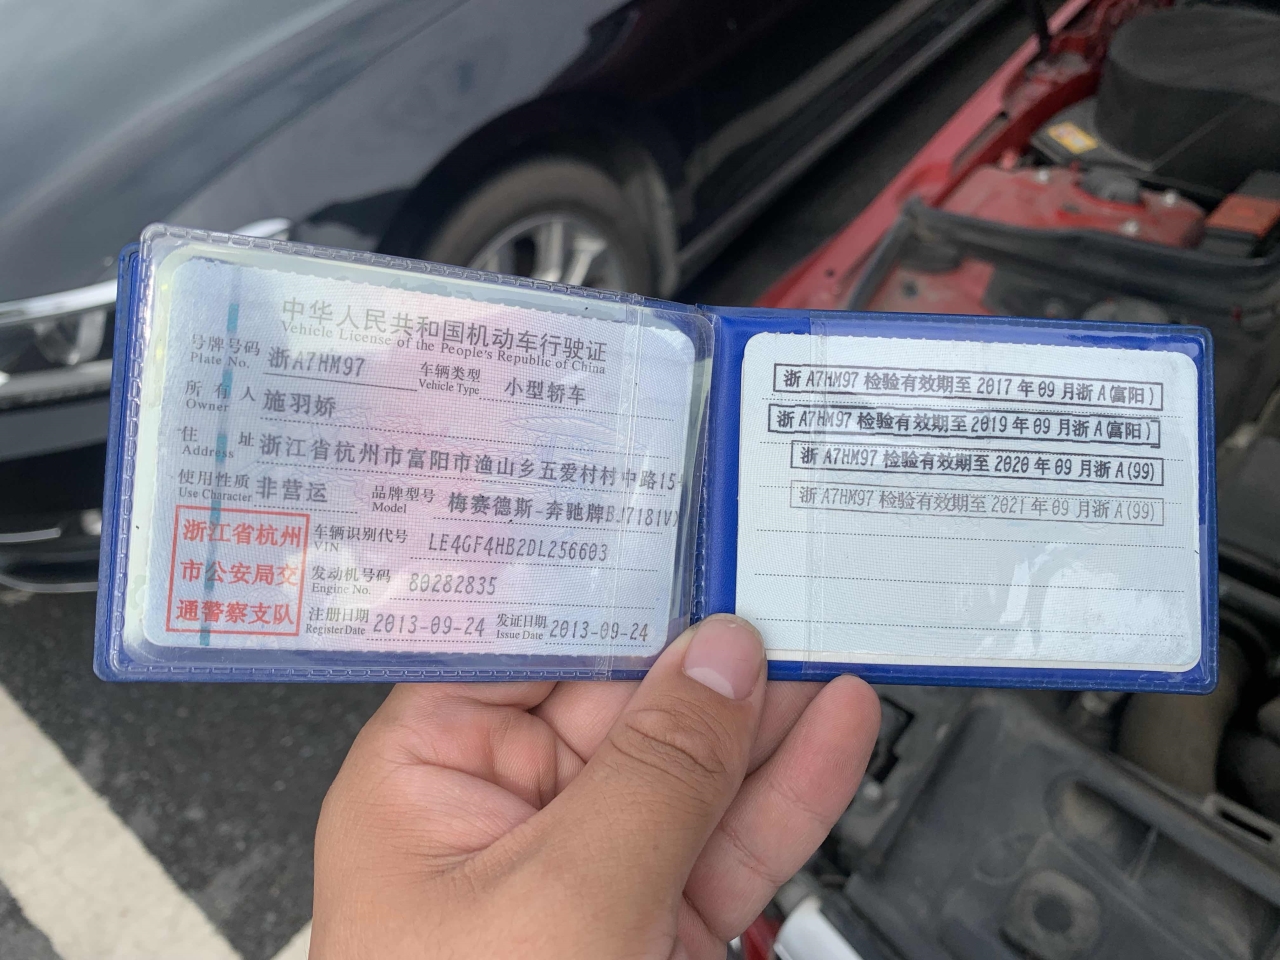 中华人民共和国机动车行驶证
Vehicle License of the People's Republic of China
号牌号码 浙A7HM97 车辆类型 小型轿车
Plate No. Vehicle Type
所有人 施羽娇
Owner
住址 浙江省杭州市富阳市渔山乡五爱村村中路15
Address
使用性质 非营运 品牌型号 梅赛德斯-奔驰牌BJ7181V
Use Character Model
浙江省杭州
市公安局交
通警察支队
车辆识别代号 LE4GF4HB2DL256603
VIN
发动机号码 80282835
Engine No.
注册日期 2013-09-24 发证日期 2013-09-24
Register Date Issue Date
浙A7HM97 检验有效期至 2017 年 09 月浙A(富阳)
浙A7HM97 检验有效期至 2019 年 09 月浙A(富阳)
浙A7HM97 检验有效期至 2020 年 09 月浙A(99)
浙A7HM97 检验有效期至 2021 年 09 月浙A(99)